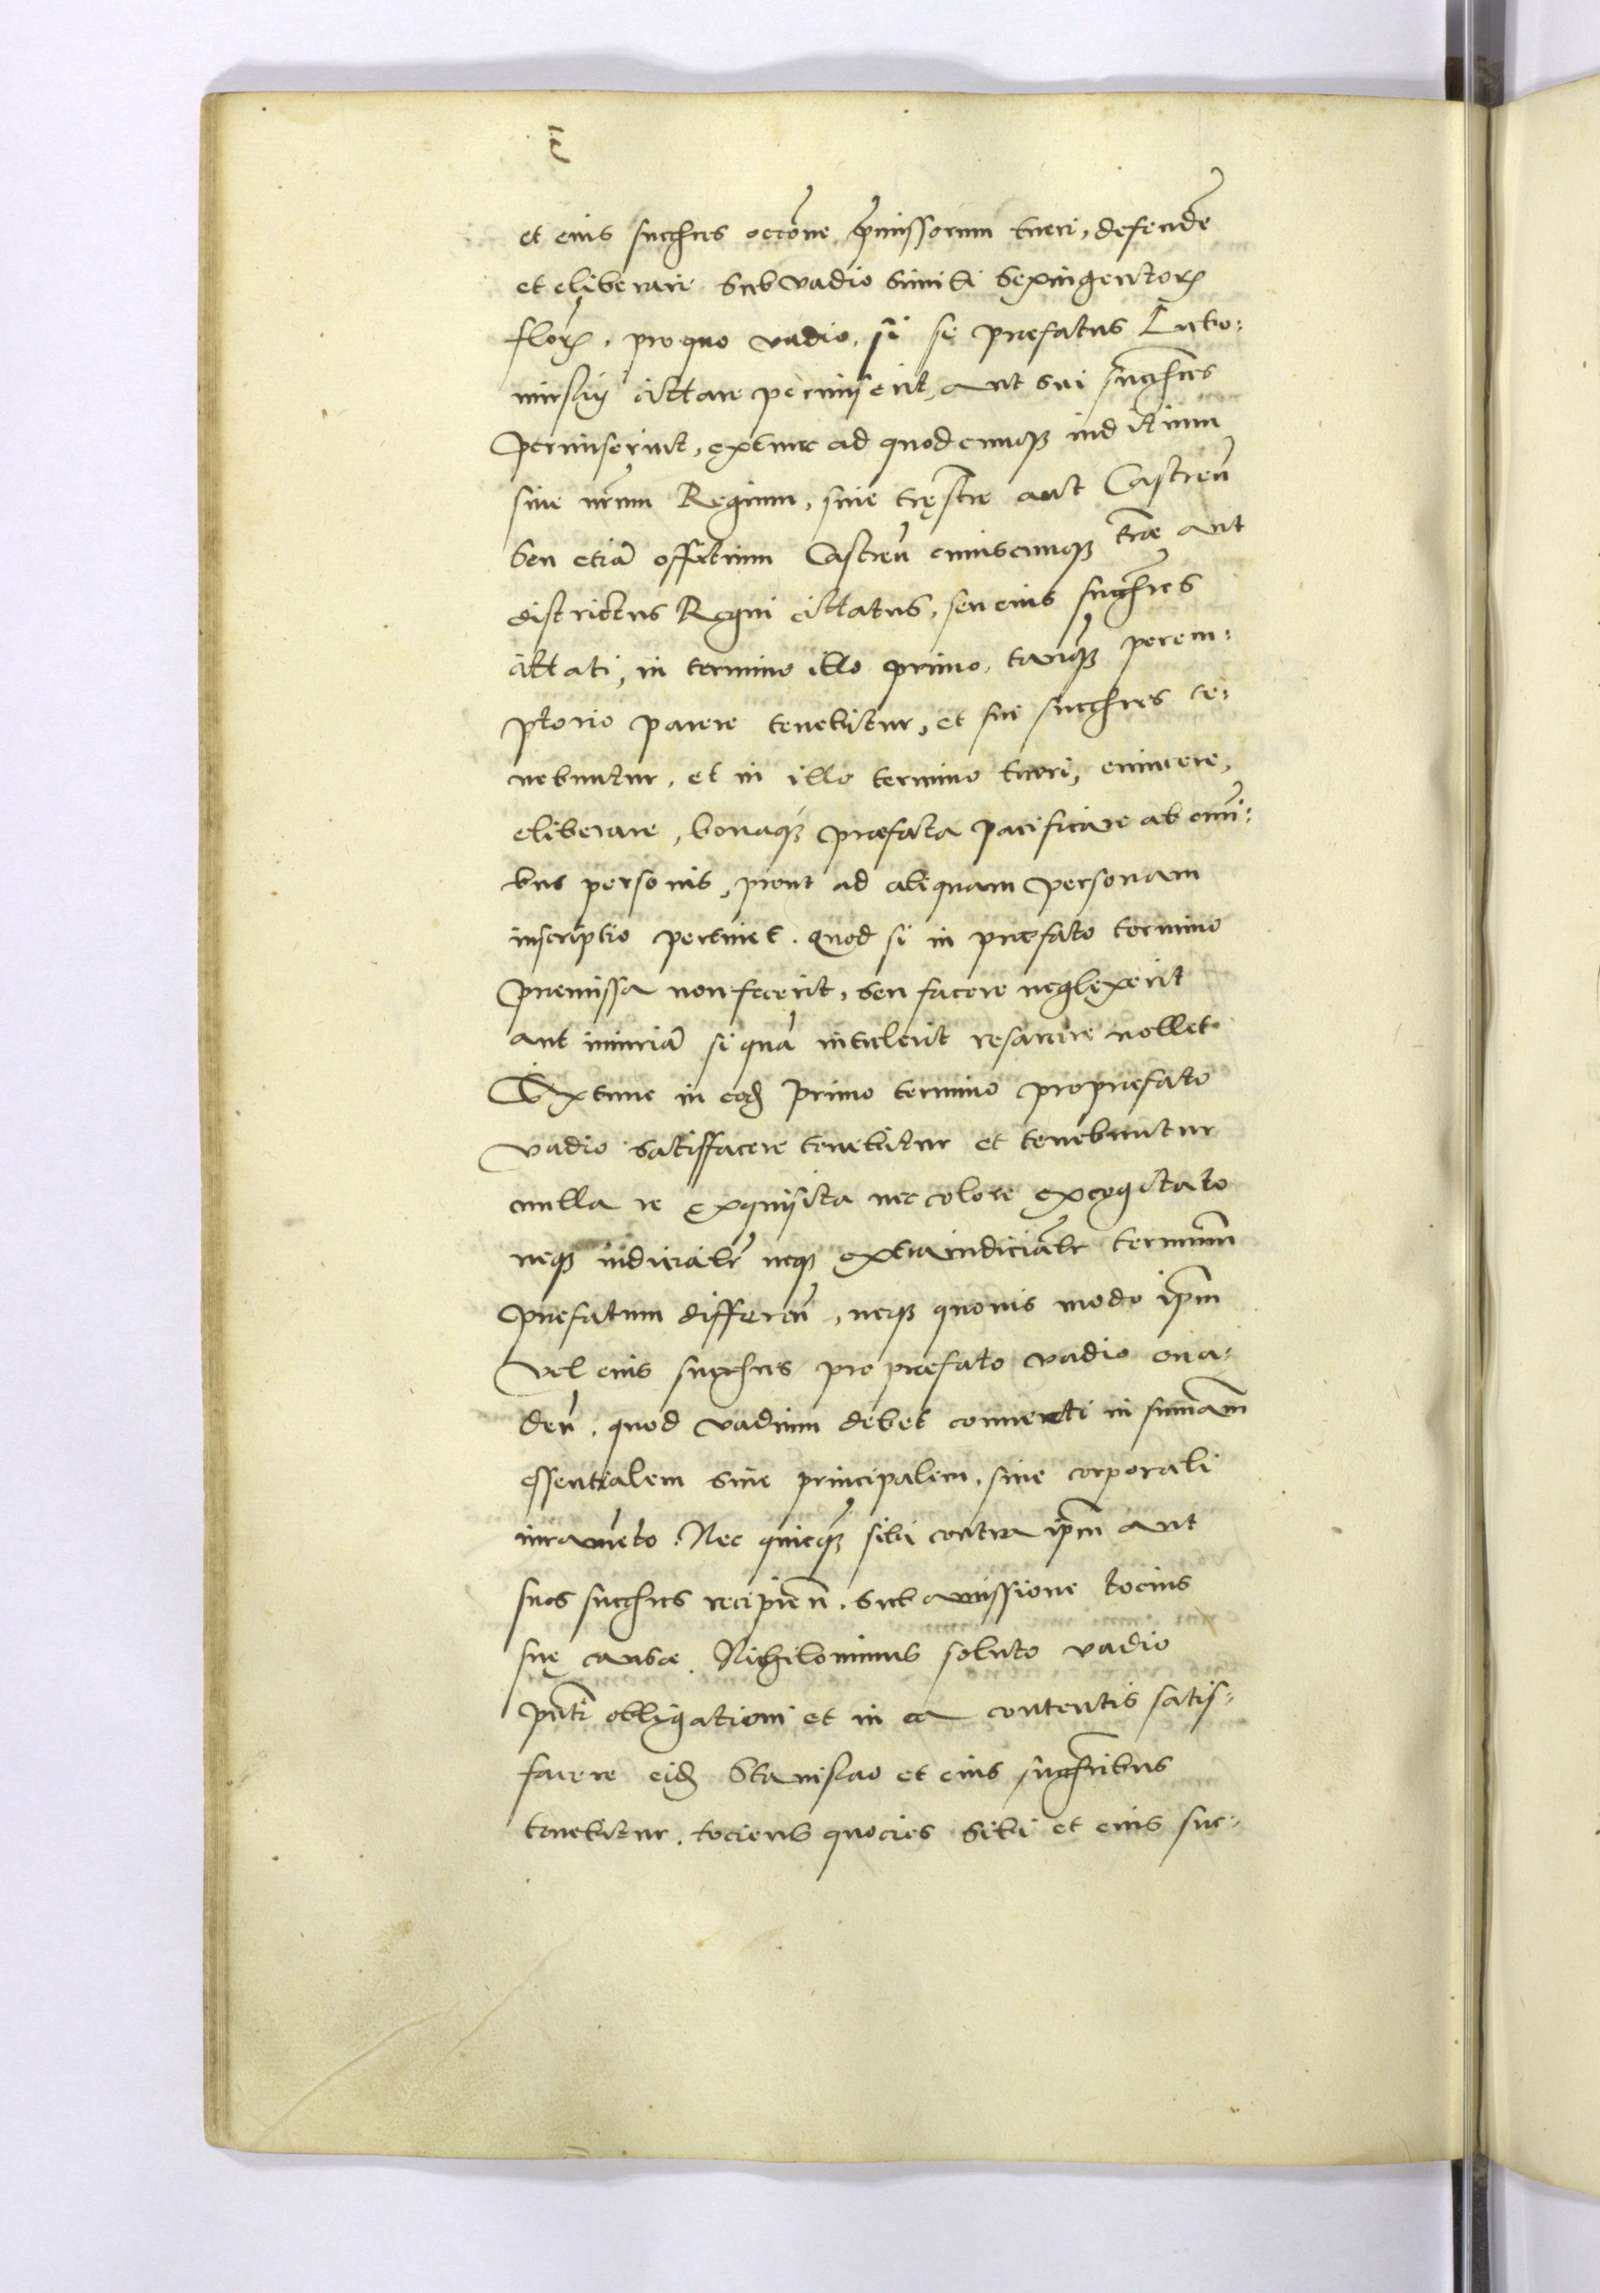 et eius succhres occōne p̄missorum tueri, defendē
et eliberare sub vadio simili sexingentorꝝ
florꝝ. pro quo vadio, si se præfatus Luto-
mirsky cittare permiserit, aut sui succħres
permiserint, extunc ad quodcunqꝫ iuditium
siue nr̄um Regium, siue tręstre aut Castren̄
seu etiā offitium Castren̄ cuiuscunqꝫ trāe aut
districtus Regni cittatus, seu eius succħres
cittati, in termino illo primo, tanqꝫ perem-
ptorio parere tenebitur, et sui succħres te-
nebuntur, et in illo termino tueri, euincere,
eliberare, bonaqꝫ præfata pacificare ab omni-
bus personis, prout ad aliquam personam
inscriptio pertinet. Quod si in præfato termino
præmissa non fecerit, seu facere neglexerit
aut iniuriā si quā intulerit resarcire nollet.
Extunc in eodꝫ primo termino pro præfato
vadio satisfacere tenebitur et tenebuntur
nulla re exquisita nec colore excogitato
neqꝫ iudicialr̄ neqꝫ extraiudicialr̄ terminum̄
præfatum differen̄, neqꝫ quouis modo ip̄m
vel eius succħres pro præfato vadio eua-
den̄. quod vadium debet conuerti in summam̄
essentialem siue principalem, sine corporali
iuramēto. Nec quicqꝫ sibi contra ip̄m aut
suos succħres recipien̄. sub amissione tocius
suę causæ. Nihilominus soluto vadio
pn̄ti obligationi et in ea contentis satis-
facere eidꝫ Stanislao et eius succħribus
tenebitur. tociens quocies sibi et eius suc-